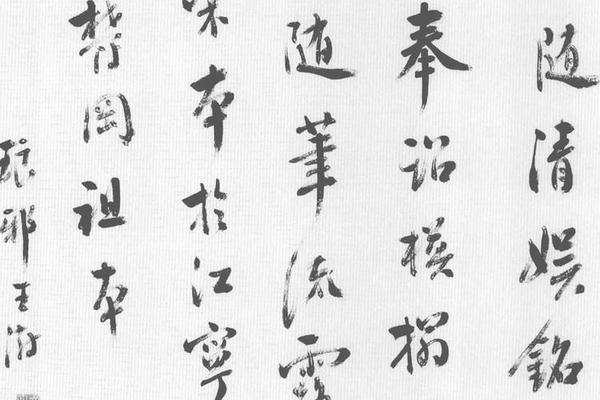 随清娛銘
奉詔模搨
随筆流
本於江寧
岡祖本
琅邪王澍